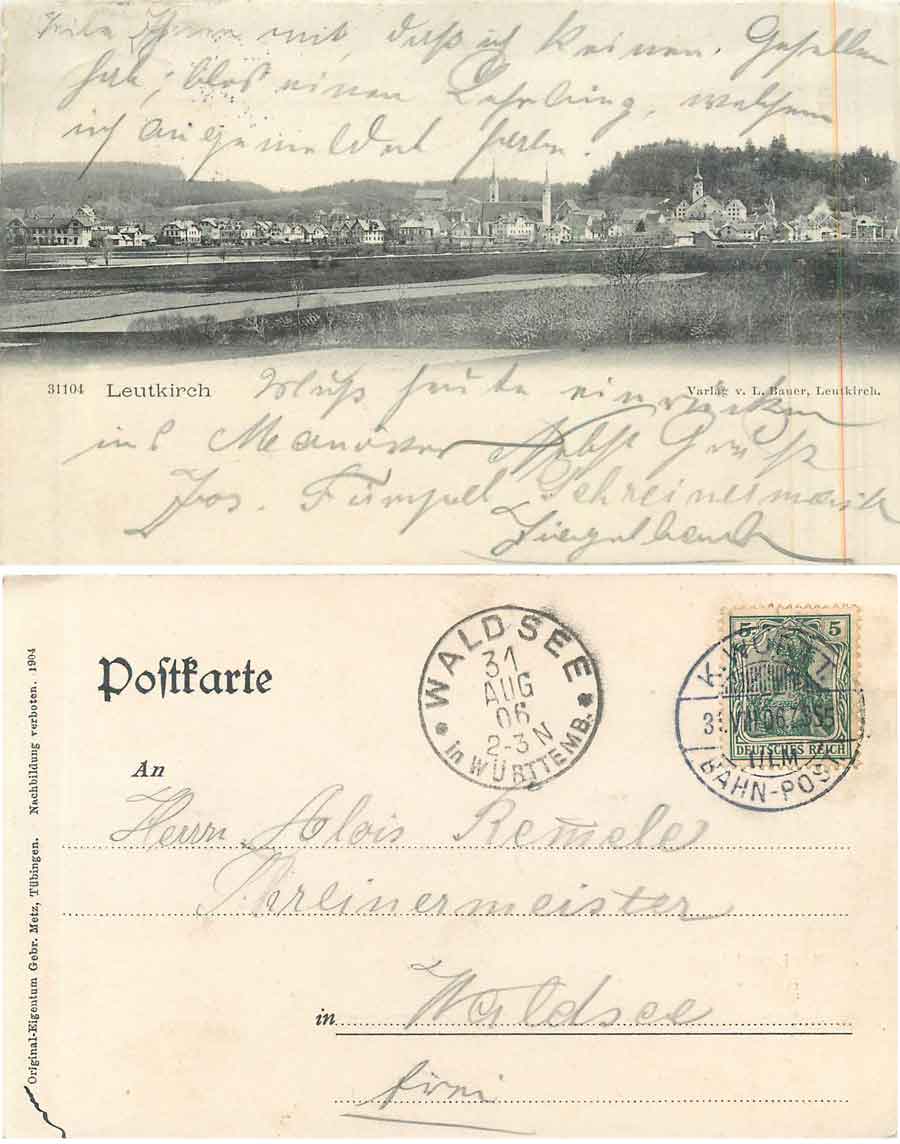 Teile Ihnen mit, daß ich keinen Gesellen
hab; blos einen Lehrling, welchen
ich angemeldet habe.
31104 Leutkirch
Verlag v. L. Bauer, Leutkirch.
Muß heute einrücken
ins Manöver Nebst Gruß
Jos. Schreinermeister
Postkarte
WALDSEE
31
AUG
06
2-3 N
in WÜRTTEMB.
5 5
DEUTSCHES REICH
K. WÜRTT.
BAHN-POST
An
Herrn Alois Remele
Schreinermeister
in Waldsee
frei
Original-Eigentum Gebr. Metz, Tübingen. Nachbildung verboten. 1904